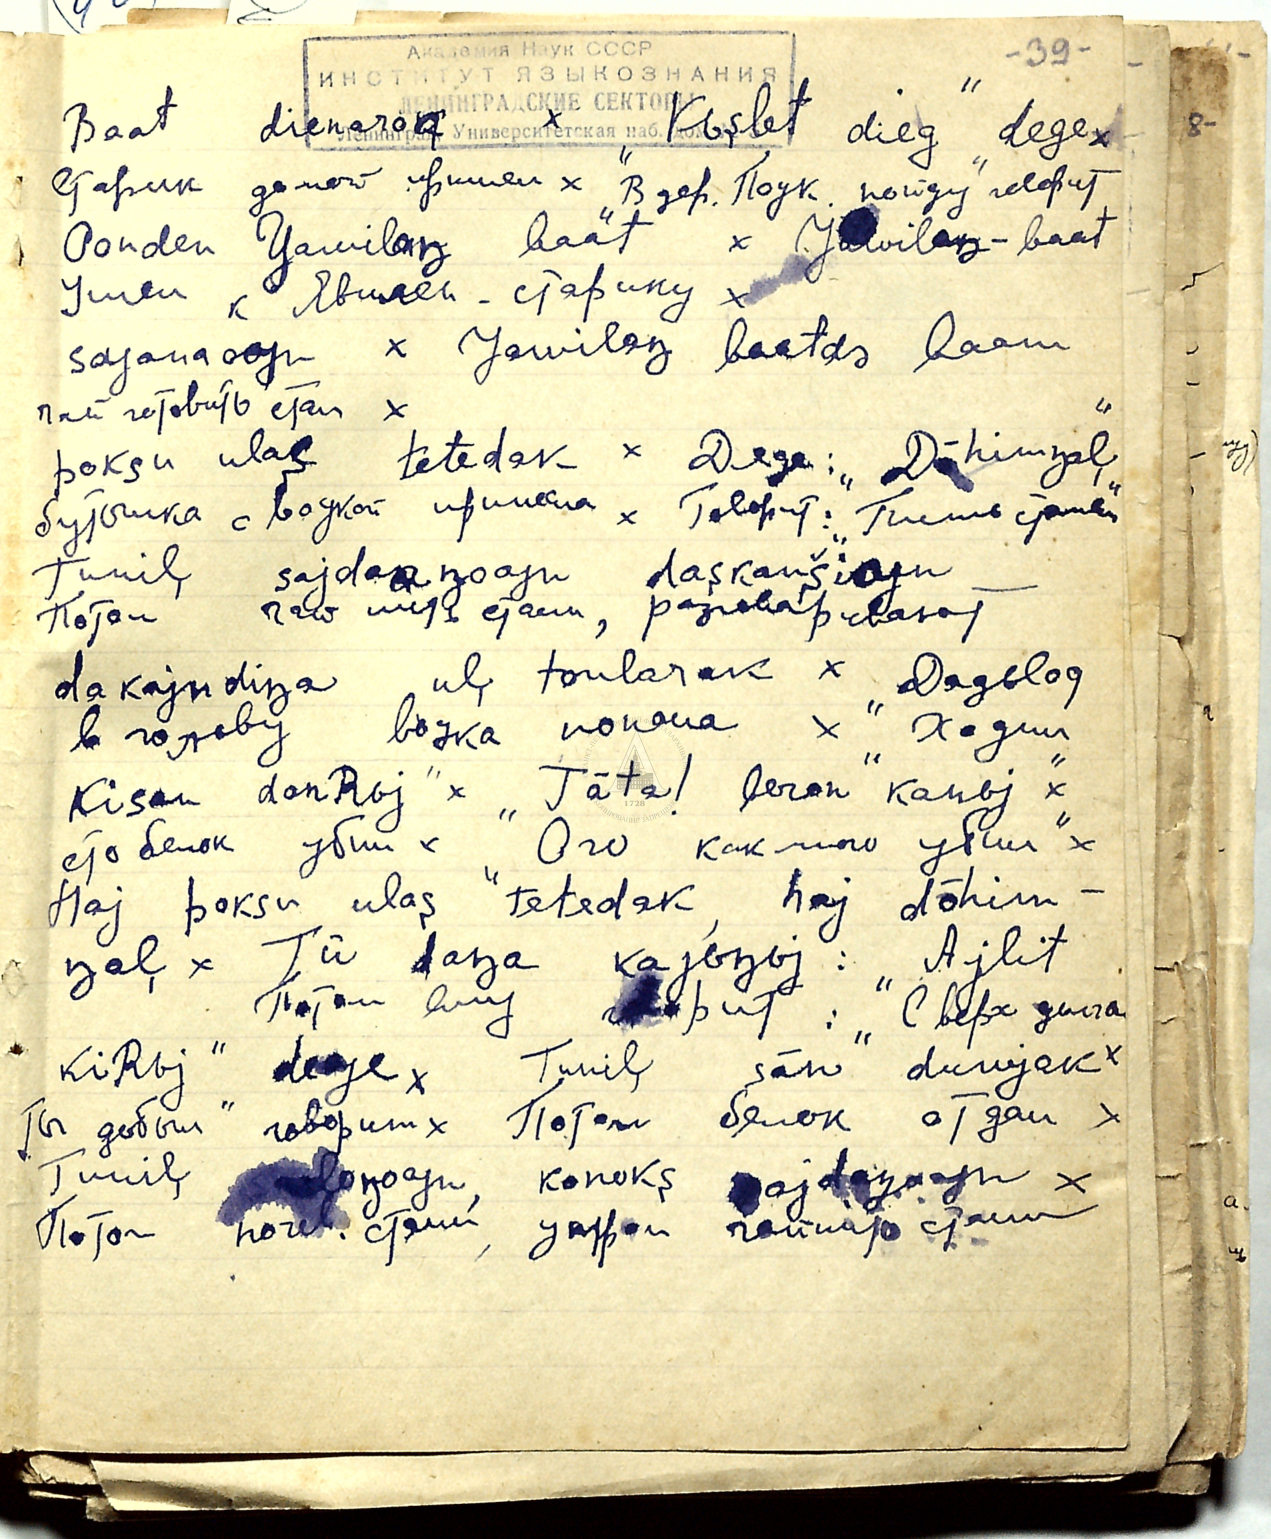 -39-
Академия Наук СССР
ИНСТИТУТ ЯЗЫКОЗНАНИЯ
ЛЕНИНГРАДСКИЕ СЕКТОРЫ
Ленинград, Университетская наб. дом
Baat dienaroq x „Kьşlet dieg" dege x
Старик домой пришел x „В дер. Поук. пойду" говорит
Oonden Yawilaŋ baät x Yawilaŋ-baat
Ушел к Явилен-старику x
sajanaoɔjn x Yawilaŋ baatdə baam
чай готовить стал x
poksu ulaş tetedak x Dege: „Dōhimŋaļ"
бутылка с водкой пришла x Говорит: „Пить станем"
Tuniļ sajdaŋŋoajn daşkanšiajn
Потом чаю пить стали, разговаривают
dakajndiŋa uļ toularak x „Dagьloq
в голову водка попала x „Ходил
Kisan donRьj" x „Tāta! beran kanьj" x
сто белок убил x „Ого как много убил" x
Haj poksu ulaş tetedak, haj dōhim-
ŋaļ x Tü daŋa kajьŋьj: „Ajlit
Потом ему : „Сверх
kiRьj" deaje x Tuniļ sān dunjak x
ты добыл" говорит x Потом белок отдал x
Tuniļ konokş x
Потом стали, утром чай пить стали